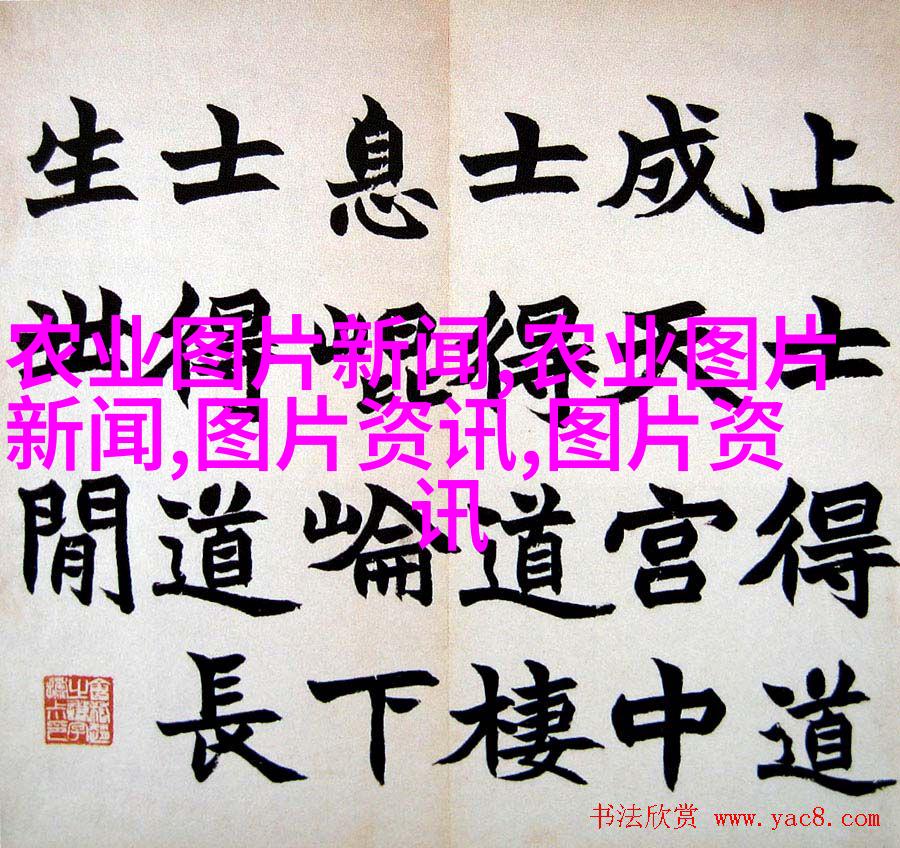 上士得道
成天宮中
士得道棲
息崐崘下
士得道長
生世閒
农业图片新闻,农业图片
新闻,图片资讯,图片资
讯
书法欣赏 www.yac8.com